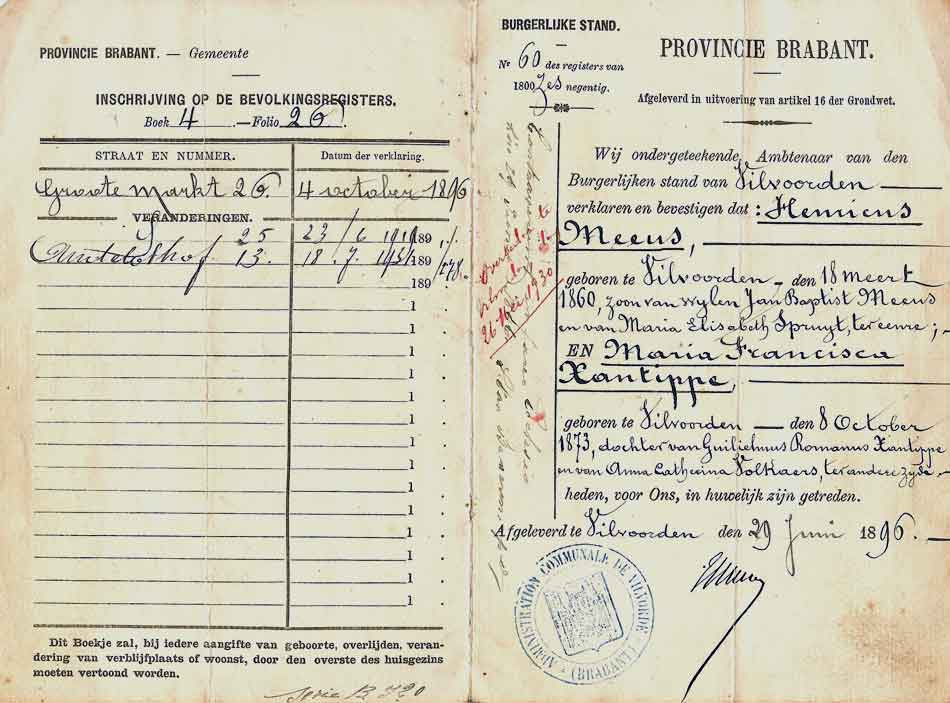 PROVINCIE BRABANT. — Gemeente
INSCHRIJVING OP DE BEVOLKINGSREGISTERS.
Boek 4 .—Folio 26.
STRAAT EN NUMMER. Datum der verklaring.
Groote Markt 26 4 october 1896
VERANDERINGEN.
25 23 / 6 1919 189
13. 18 . 7. 189
189
1
1
1
1
1
1
1
1
1
1
1
1
1
1
Dit Boekje zal, bij iedere aangifte van geboorte, overlijden, veran-
dering van verblijfplaats of woonst, door den overste des huisgezins
moeten vertoond worden.
Serie B
BURGERLIJKE STAND.
Nr 60 des registers van
1800 zes negentig.
PROVINCIE BRABANT.
Afgeleverd in uitvoering van artikel 16 der Grondwet.
Wij ondergeteekende, Ambtenaar van den
Burgerlijken stand van Vilvoorden
verklaren en bevestigen dat : Henricus
Meeus,
geboren te Vilvoorden - den 18 meert
1860, zoon van wylen Jan Baptist Meeus
en van Maria Elisabeth Spruyt, ter eenre ;
EN Maria Francisca
Xantippe,
geboren te Vilvoorden — den 8 October
1873, dochter van Guilielmus Romanus Xantippe
en van Anna Catherina Volkaers, ter andere zyde
heden, voor Ons, in huwelijk zijn getreden.
Afgeleverd te Vilvoorden den 29 Juni 1896.
1930
ADMINISTRATION COMMUNALE DE VILVORDE
(BRABANT)